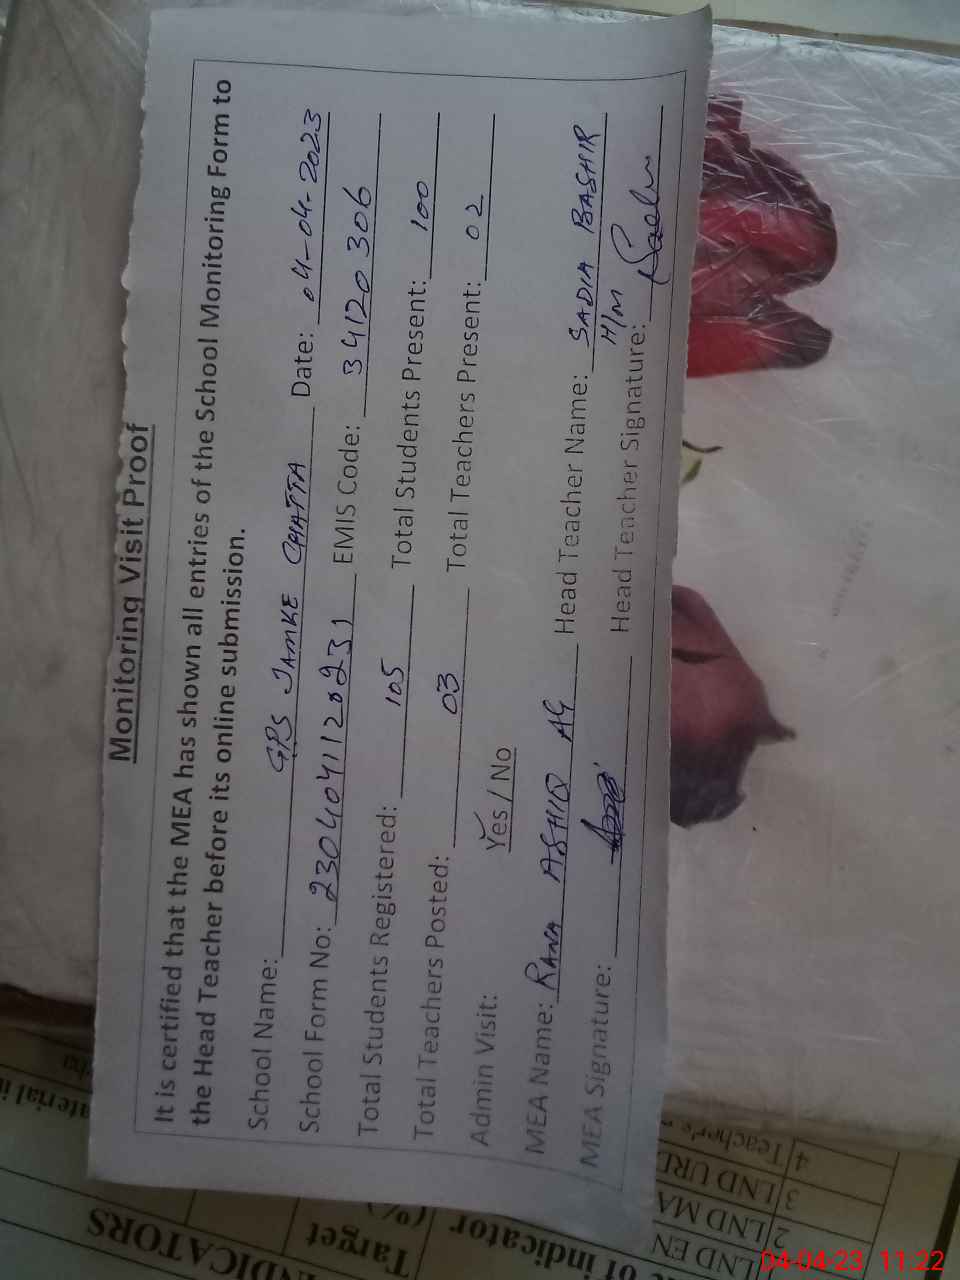 Monitoring Visit Proof
It is certified that the MEA has shown all entries of the School Monitoring Form to
the Head Teacher before its online submission.
School Name: GPS JAMKE CHATTA Date: 04-04-2023
School Form No: 2304041120231 EMIS Code: 34120306
Total Students Registered: 105 Total Students Present: 100
Total Teachers Posted: 03 Total Teachers Present: 02
Admin Visit: Yes / No
MEA Name: RANA ASHIQ Head Teacher Name: SADIA BASHIR
H/M
MEA Signature: Head Teacher Signature:
INDICATORS
Target
(%)
of indicator
LND EN
2 LND MA
3 LND URD
4 Teacher's
04-04-23 11:22